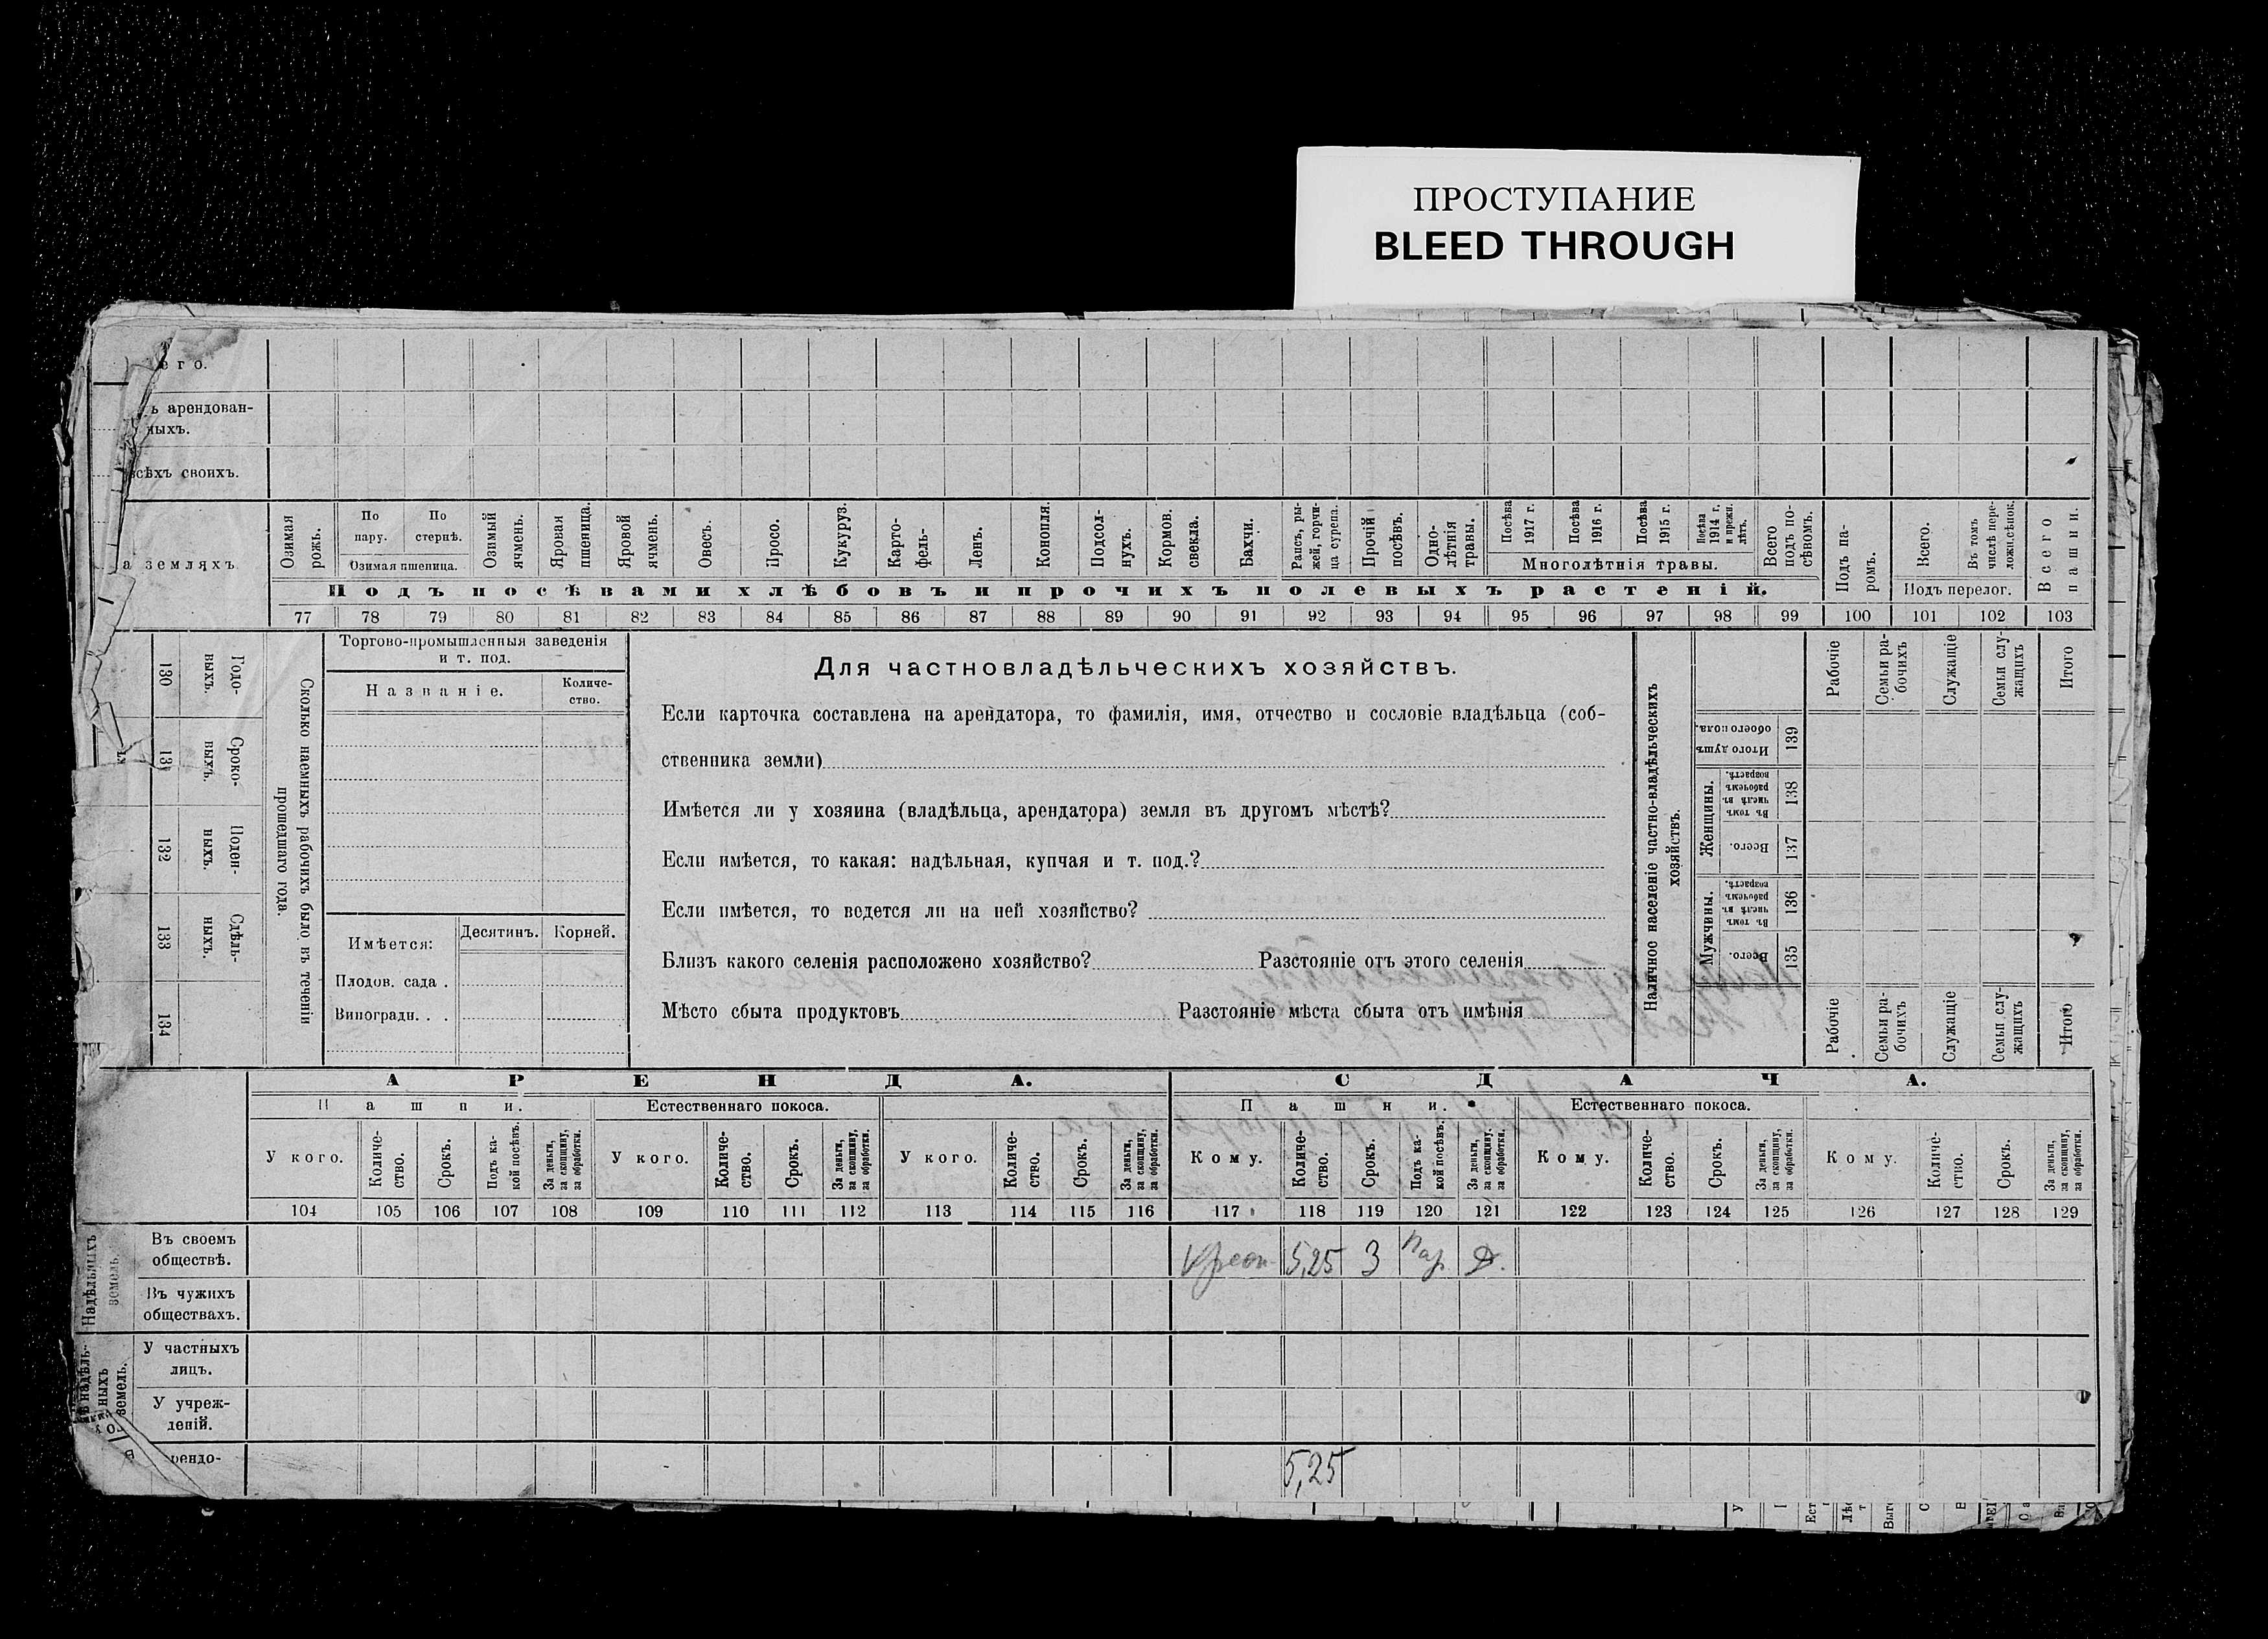 ПРОСТУПАНИЕ
BLEED THROUGH
его.
ъ арендован-
ныхъ.
всѣхъ своихъ.
а земляхъ
Озимая рожь.
По пару.
По стернѣ.
Озимая пшеница.
Озимый ячмень.
Яровая пшеница.
Яровой ячмень.
Овесъ.
Просо.
Кукуруз.
Карто-
фель-
Ленъ.
Конопля.
Подсол-
нухъ.
Кормов. свекла.
Бахчи.
Рапсъ, ры-
жей, горчи-
ца сурепа.
Прочій посѣвъ.
Одно-
лѣтнія травы.
Посѣва 1917 г.
Посѣва 1916 г.
Посѣва 1915 г.
Посѣва 1914 г. и прежн. лѣтъ.
Многолѣтнія травы.
Всего подъ по-
сѣвомъ.
Подъ па-
ромъ.
Всего.
Въ томъ числѣ пере-
ложн.сѣнок.
Подъ перелог.
Всего пашни.
Подъ посѣвами хлѣбовъ и прочихъ полевыхъ растеній.
77 78 79 80 81 82 83 84 85 86 87 88 89 90 91 92 93 94 95 96 97 98 99 100 101 102 103
130 Годо-
выхъ.
131 Сроко-
ныхъ.
132 Поден-
ныхъ.
133 Сдѣль-
ныхъ.
134
Сколько наемныхъ рабочихъ было въ теченіи
прошедшаго года.
Торгово-промышленныя заведенія
и т. под.
Названіе.
Количе-
ство.
Имѣется:
Десятинъ.
Корней.
Плодов. сада .
Виноградн. . .
Для частновладѣльческихъ хозяйствъ.
Если карточка составлена на арендатора, то фамилія, имя, отчество и сословіе владѣльца (соб-
ственника земли)
Имѣется ли у хозяина (владѣльца, арендатора) земля въ другомъ мѣстѣ?
Если имѣется, то какая: надѣльная, купчая и т. под.?
Если имѣется, то ведется ли на ней хозяйство?
Близъ какого селенія расположено хозяйство? Разстояніе отъ этого селенія
Мѣсто сбыта продуктовъ Разстояніе мѣста сбыта отъ имѣнія
Наличное населеніе частно-владѣльческихъ
хозяйствъ.
Рабочіе
Семьи ра-
бочихъ
Служащіе
Семьи слу-
жащихъ
Итого
Итого душъ обоего пола. 139
Женщины.
Въ томъ числѣ въ рабочемъ возрастѣ. 138
Всего. 137
Мужчины.
Въ томъ числѣ въ рабочемъ возрастѣ. 136
Всего. 135
Рабочіе
Семьи ра-
бочихъ
Служащіе
Семьи слу-
жащихъ
Итого
АРЕНДА.
СДАЧА.
Пашни.
Естественнаго покоса.
Пашни.
Естественнаго покоса.
У кого.
Количе-
ство.
Срокъ.
Подъ ка-
кой посѣвъ.
За деньги, за скопщину, за обработки.
У кого.
Количе-
ство.
Срокъ.
За деньги, за скопщину, за обработки.
У кого.
Количе-
ство.
Срокъ.
За деньги, за скопщину, за обработки.
Кому.
Количе-
ство.
Срокъ.
Подъ ка-
кой посѣвъ.
За деньги, за скопщину, за обработки.
Кому.
Количе-
ство.
Срокъ.
За деньги, за скопщину, за обработки.
Кому.
Количе-
ство.
Срокъ.
За деньги, за скопщину, за обработки.
104 105 106 107 108 109 110 111 112 113 114 115 116 117 118 119 120 121 122 123 124 125 126 127 128 129
Надѣльныхъ земель.
Въ своемъ
обществѣ.
5,25 3 Пар Д.
Въ чужихъ
обществахъ.
У частныхъ
лицъ.
У учреж-
деній.
рендо-
5,25